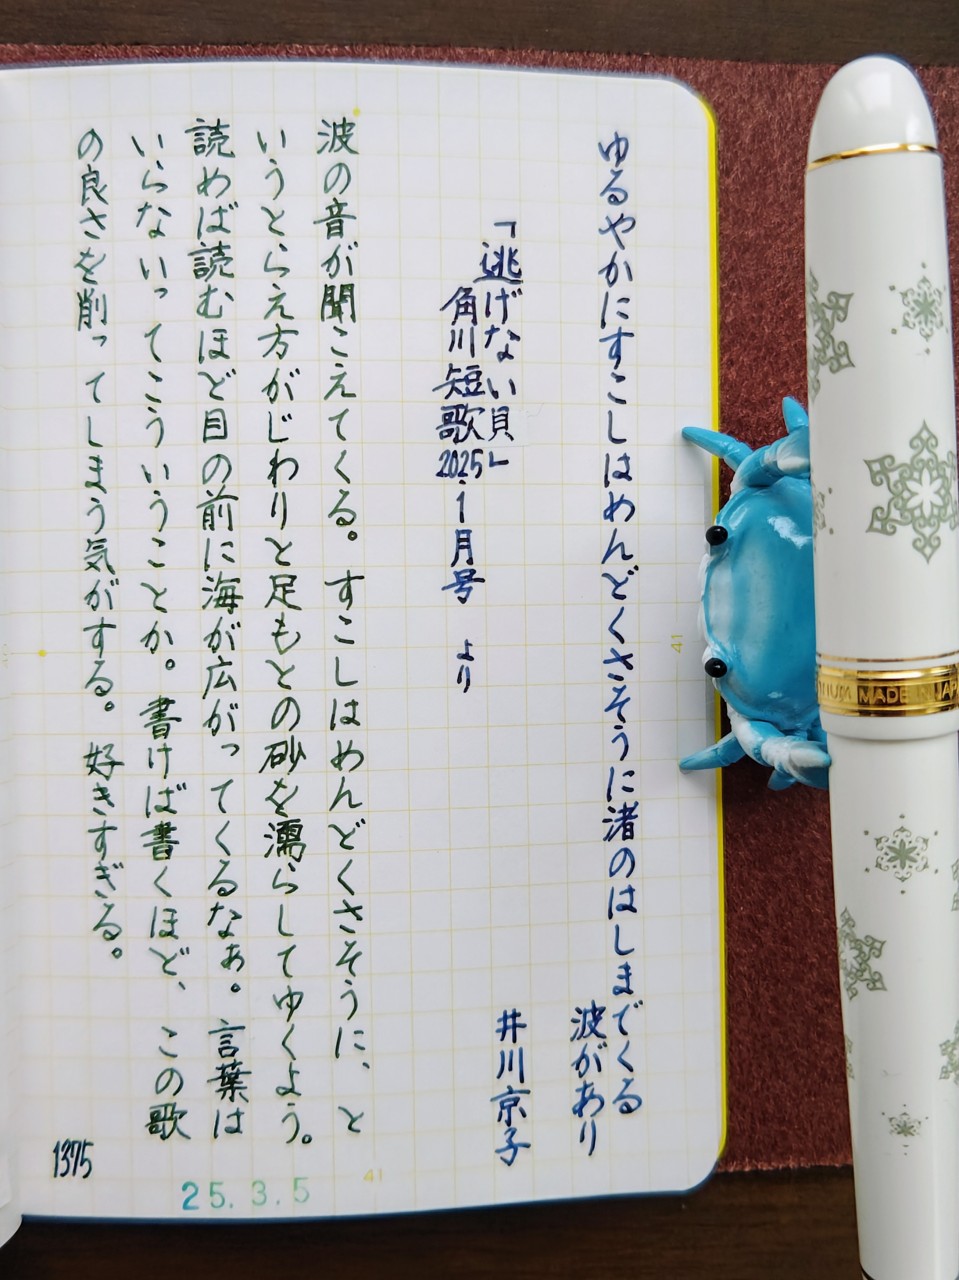 ゆるやかにすこしはめんどくさそうに渚のはしまでくる
波があり
井川京子
「逃げない貝」
角川短歌2025.1月号 より
波の音が聞こえてくる。すこしはめんどくさそうに、と
いうとらえ方がじわりと足もとの砂を濡らしてゆくよう。
読めば読むほど目の前に海が広がってくるなぁ。言葉は
いらないってこういうことか。書けば書くほど、この歌
の良さを削ってしまう気がする。好きすぎる。
1375
25.3.5
41
41
MADE IN JAPA